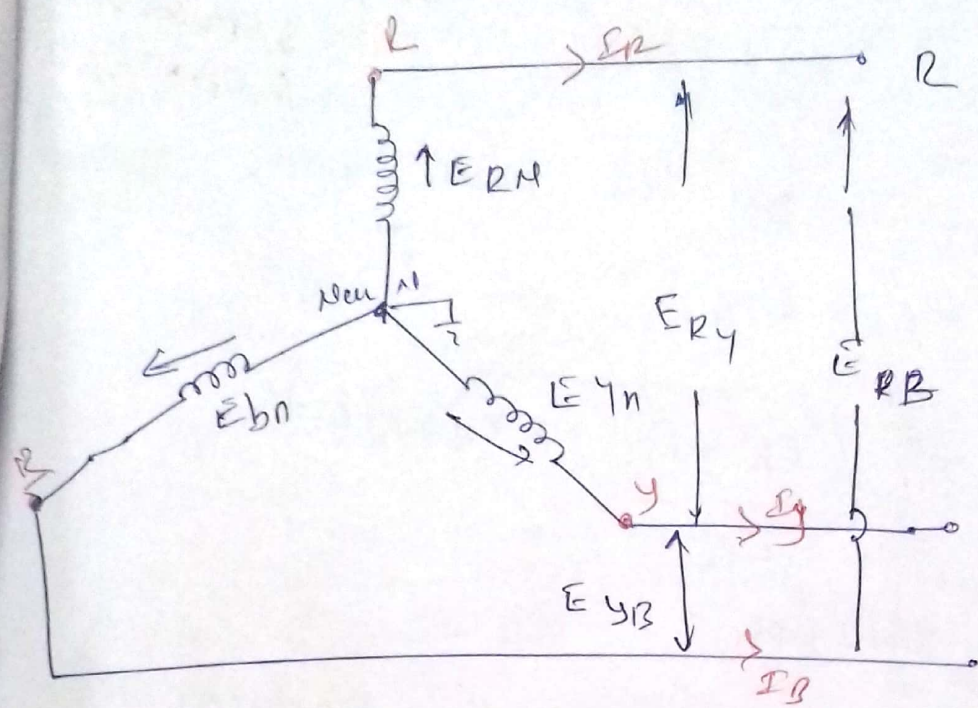 R
IR
R
ERN
Neu N
ERY
ERB
Ebn
EYn
R
Y
Iy
EYB
IB